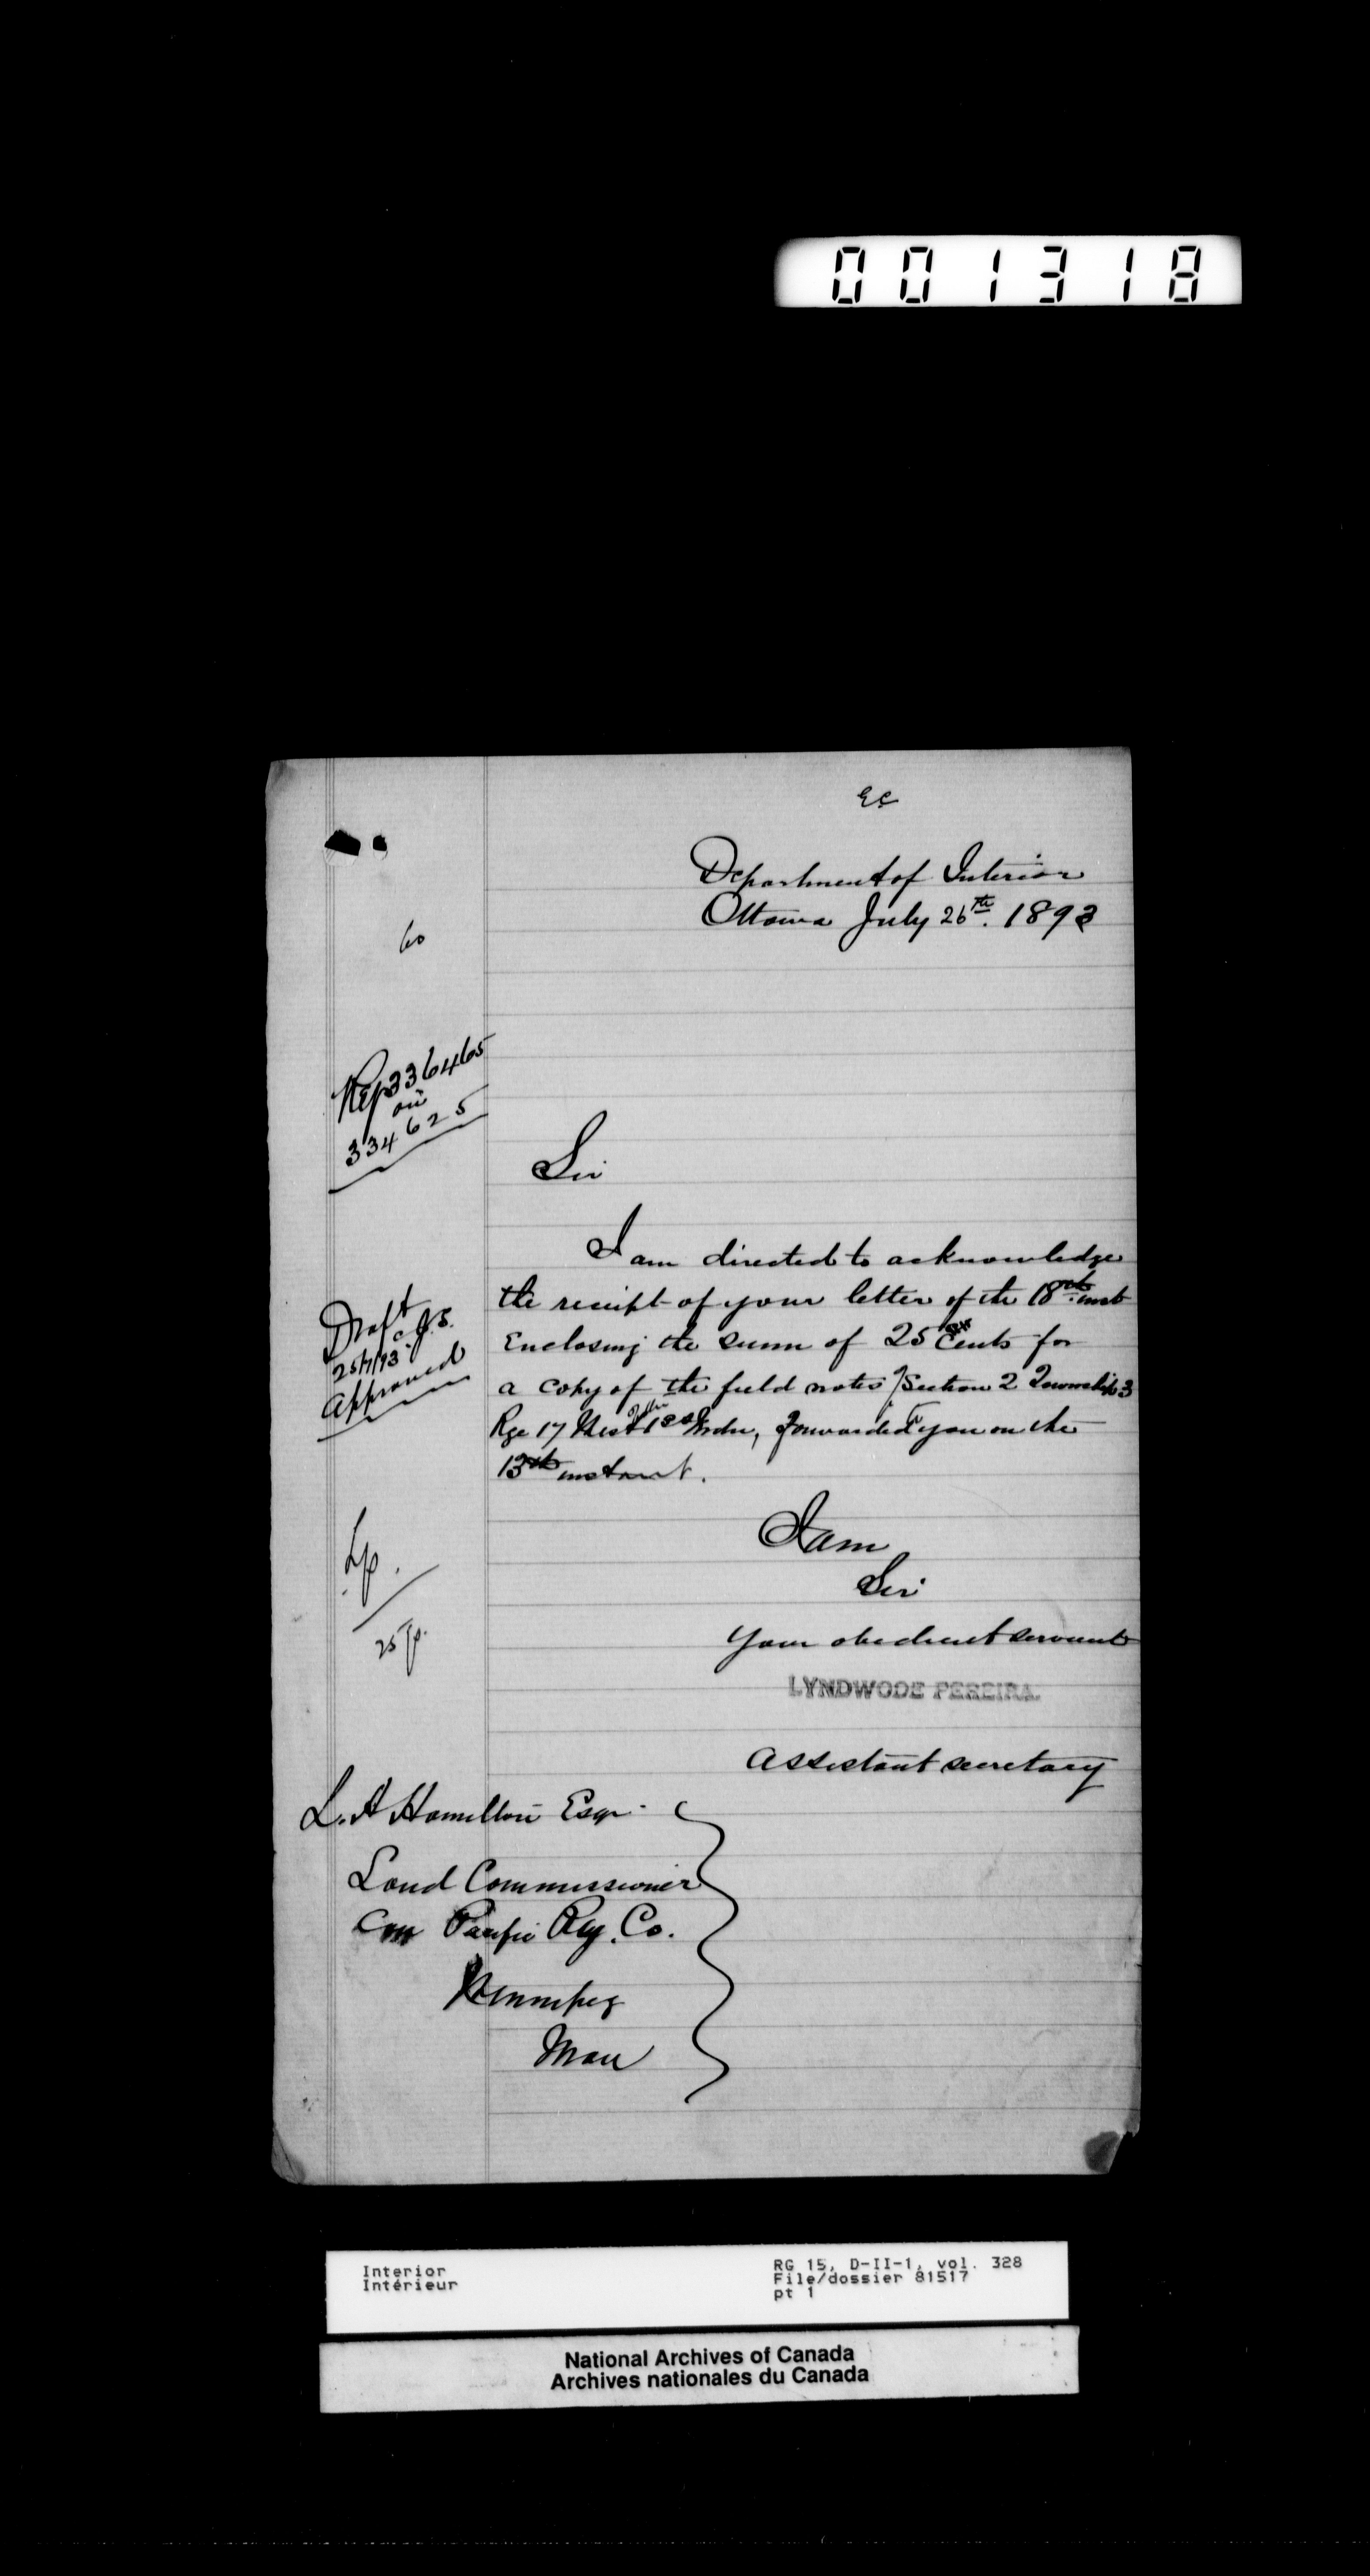 001318
EC
Department of Interior
Ottawa July 26th. 1893
60
Ref 336465
on
334625
Sir
I am directed to acknowledge
the receipt of your letter of the 18th inst
Enclosing the sum of 25 cents for
a copy of the field notes of Section 2 Township 3
Rge 17 West of the 1st Mdn, forwarded you on the
13th instant.
Draft
25/7/93
Approved
I am
Sir
Your obedient servant
LYNDWODE PEREIRA.
Assistant secretary
L. A Hamilton Esqr.
Land Commissioner
Can Pacific Ry. Co.
Winnipeg
Man
Interior
Intérieur
RG 15, D-II-1, vol. 328
File/dossier 81517
pt 1
National Archives of Canada
Archives nationales du Canada